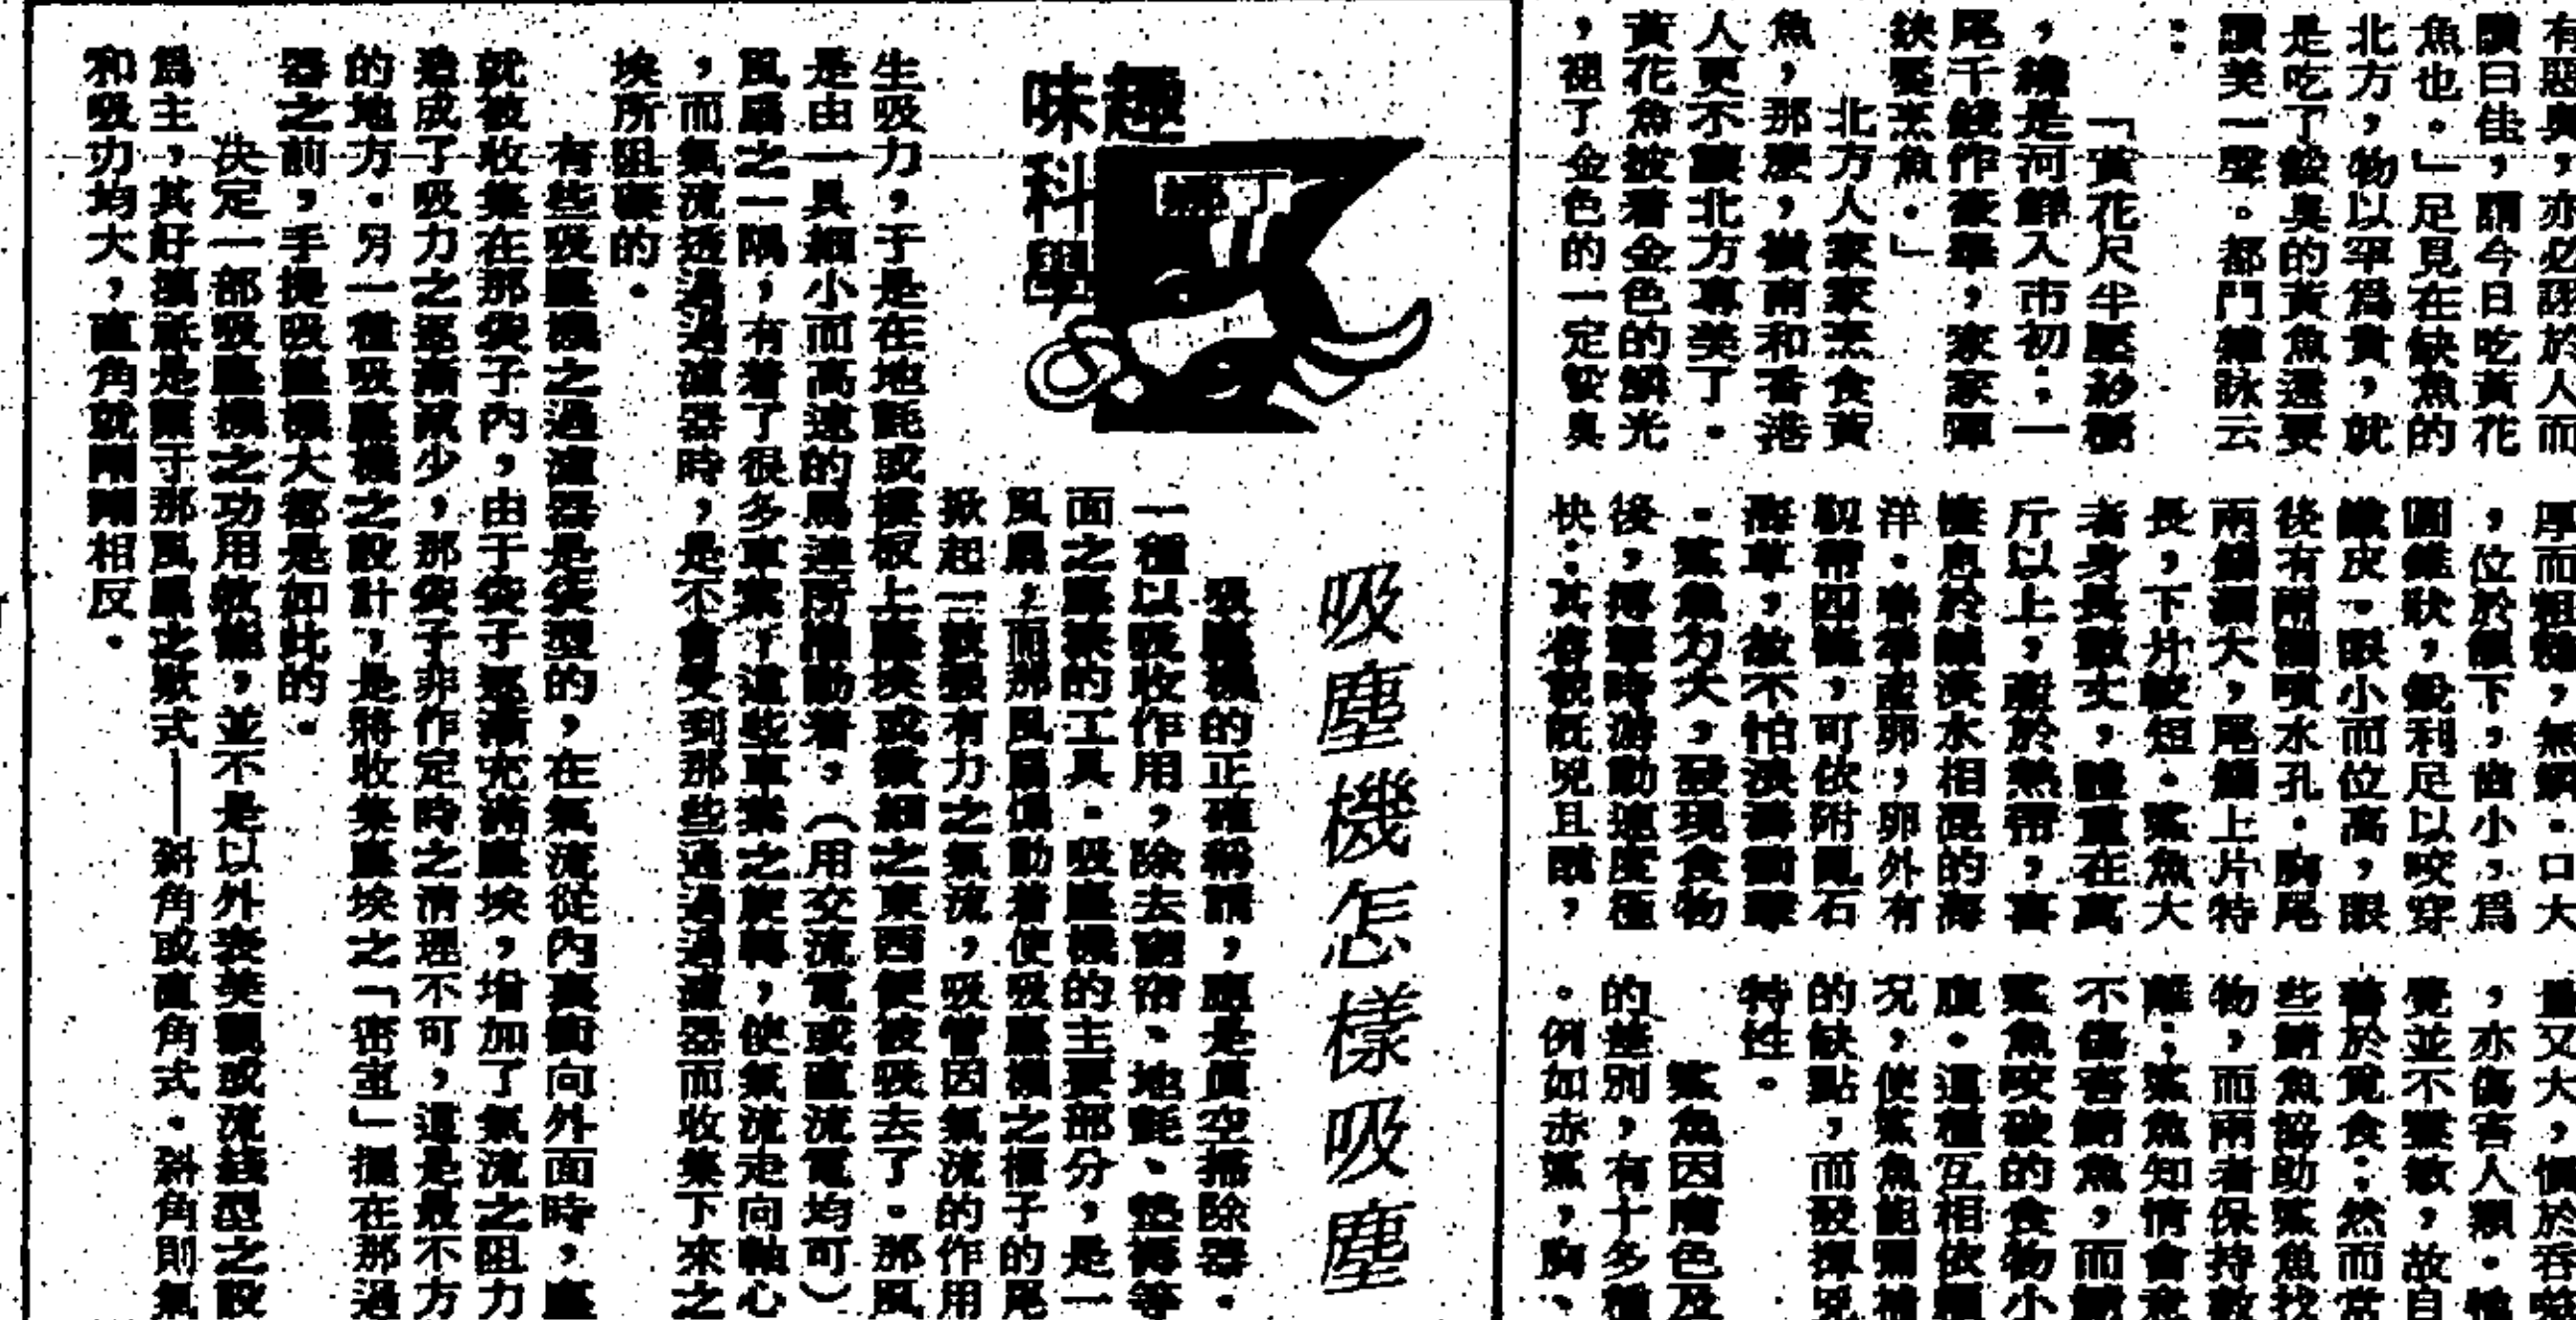 有惡臭，亦必認於人而
讚曰佳，謂今日吃黃花
魚也。」足見在缺魚的
北方，物以罕爲貴，就
是吃了餒臭的黃魚還要
讚美一聲。都門雜詠云
：
「黃花尺半壓紗櫥
，纔是河鮮入市初；一
尾千錢作豪舉，家家彈
鋏饜烹魚。」
北方人家家烹食黃
魚，那麽，嶺南和香港
人更不讓北方專美了。
黃花魚披着金色的鱗光
，褪了金色的一定餒臭
厚而粗糙，無鱗。口大
，位於頷下，齒小，爲
圓錐狀，銳利足以咬穿
鐵皮。眼小而位高，眼
後有兩個噴水孔。胸尾
兩鰭濶大，尾鰭上片特
長，下片較短。鯊魚大
者身長數丈，體重在萬
斤以上，產於熱帶，喜
棲息於鹹淡水相混的海
洋。春季產卵，卵外有
韌帶四條，可依附亂石
海草，故不怕浪濤衝擊
。鯊魚力大，發現食物
後，搏擊時游動速度極
快；其容貌既兇且醜，
量又大，慣於吞噬
，亦傷害人類。惟
覺並不靈敏，故自
善於覓食；然而常
些鯖魚協助鯊魚找
物，而兩者保持數
離；鯊魚知情會意
不傷害鯖魚，而鯖
鯊魚咬破的食物小
腹。這種互相依賴
况，使鯊魚能彌補
的缺點，而發揮兇
特性。
鯊魚因膚色及
的差別，有十多種
。例如赤鯊，胸、
趣味科學
丁
吸塵機怎樣吸塵
吸塵機的正確稱謂，應是眞空掃除器。
一種以吸收作用，除去窗帘、地氈、墊褥等
面之塵埃的工具。吸塵機的主要部分，是一
風扇，而那風扇傷動着使吸塵機之櫃子的尾
掀起一股强有力之氣流，吸管因氣流的作用
生吸力，于是在地氈或樓板上塵埃或微細之東西便被吸去了。那風
是由一具細小而高速的馬達所推動着，（用交流電或直流電均可）
風扇之一隅，有着了很多車葉，這些車葉之旋轉，使氣流走向軸心
，而氣流透過過濾器時，是不會受到那些過過濾器而收集下來之
埃所阻礙的。
有些吸塵機之過濾器是袋型的，在氣流從內裏衝向外面時，塵
就被收集在那袋子內，由于袋子逐漸充滿塵埃，增加了氣流之阻力
造成了吸力之逐漸減少，那袋子非作定時之清理不可，這是最不方
的地方。另一種吸塵機之設計，是將收集塵埃之「密室」擺在那過
器之前，手提吸塵機大都是如此的。
決定一部吸塵機之功用效能，並不是以外表美觀或流綫型之設
爲主，其好壞祇是關于那風扇之欵式——斜角或直角式。斜角則氣
和吸力均大，直角就剛剛相反。